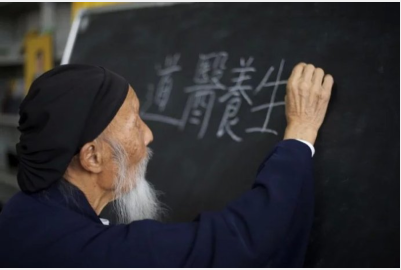 道醫養生